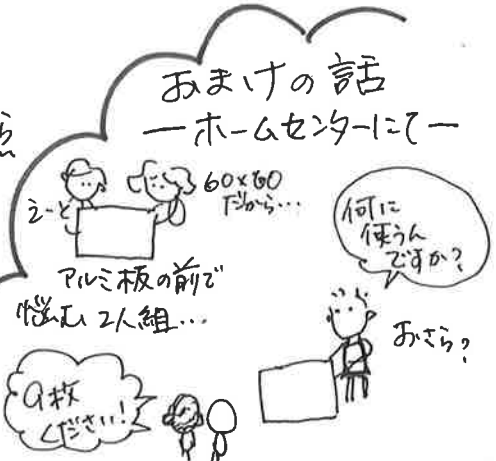 おまけの話
ーホームセンターにてー
えーと
60×60
だから…
アルミ板の前で
悩む2人組…
何に
使うん
ですか?
おさら?
9枚
ください!